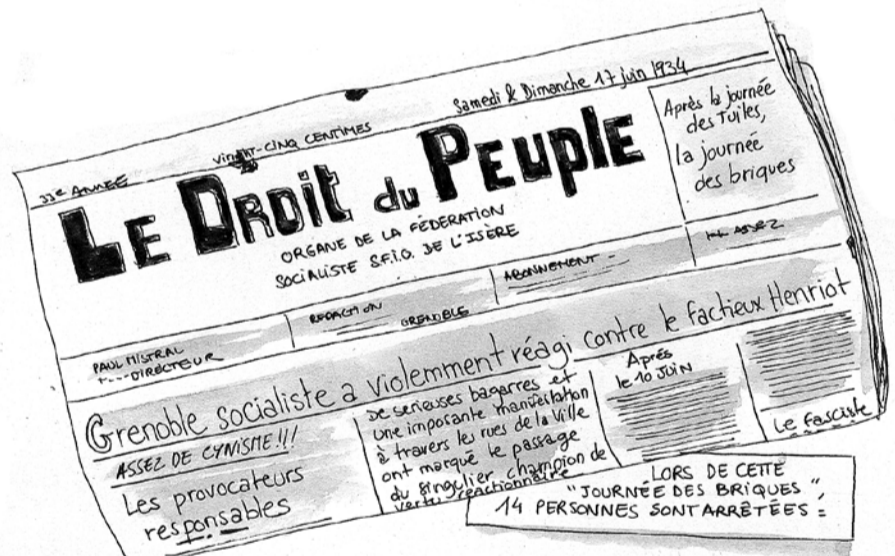 Samedi & Dimanche 17 juin 1934
33e ANNEE
VINGT-CINQ CENTIMES
LE DROIT du PEUPLE
ORGANE DE LA FÉDÉRATION
SOCIALISTE S.F.I.O. DE L'ISÈRE
Après la journée
des Tuiles,
la journée
des briques
PAUL MISTRAL
DIRECTEUR
REDACTION
GRENOBLE
ABONNEMENT
Grenoble socialiste a violemment réagi contre le factieux Henriot
ASSEZ DE CYNISME!!!
Les provocateurs
responsables
De serieuses bagarres et
une imposante manifestation
à travers les rues de la ville
ont marqué le passage
du singulier champion de
vertu réactionnaire
Après
le 10 JUIN
Le fasciste
LORS DE CETTE
"JOURNÉE DES BRIQUES",
14 PERSONNES SONT ARRÊTÉES =